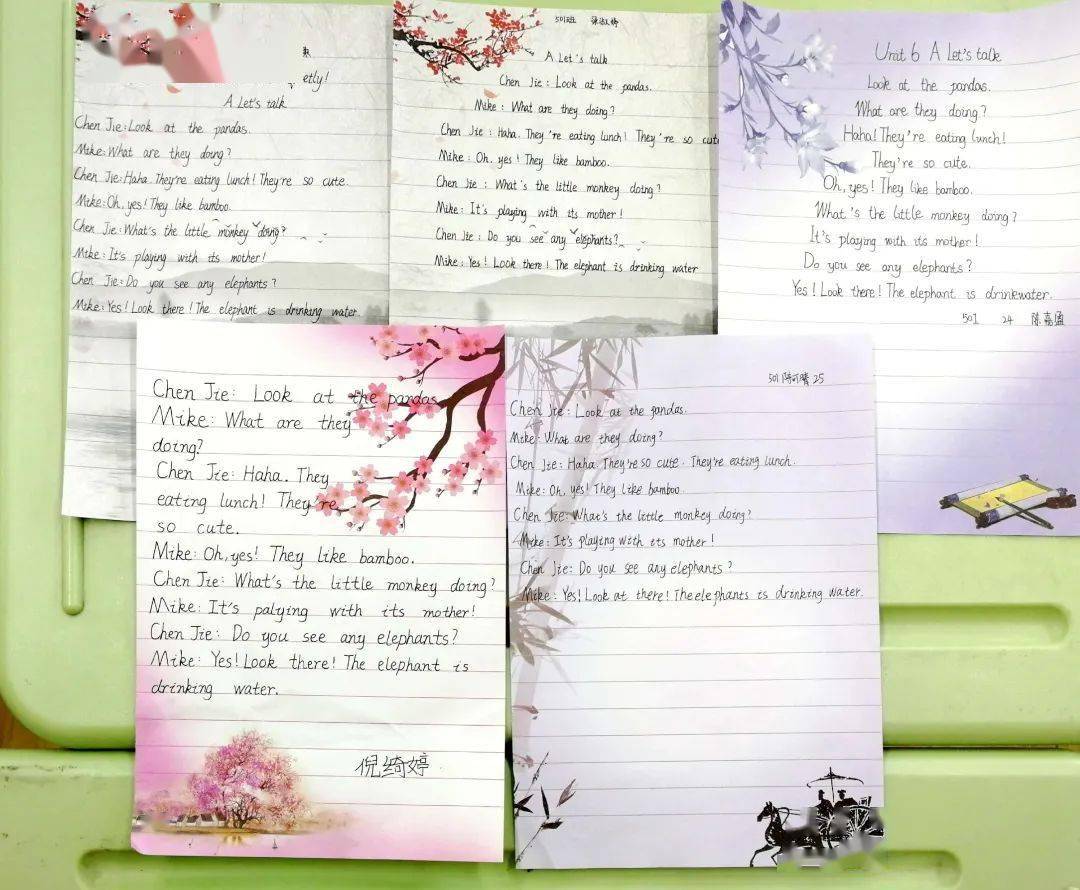 etly!
A Let's talk
Chen Jie: Look at the pandas.
Mike: What are they doing?
Chen Jie: Haha. They're eating lunch! They're so cute.
Mike: Oh, yes! They like bamboo.
Chen Jie: What's the little monkey doing?
Mike: It's playing with its mother!
Chen Jie: Do you see any elephants?
Mike: Yes! Look there! The elephant is drinking water.
501班
A Let's talk
Chen Jie: Look at the pandas.
Mike: What are they doing?
Chen Jie: Haha. They're eating lunch! They're so cut
Mike: Oh, yes! They like bamboo.
Chen Jie: What's the little monkey doing?
Mike: It's playing with its mother!
Chen Jie: Do you see any elephants?
Mike: Yes! Look there! The elephant is drinking water
Unit 6 A Let's talk
Look at the pandas.
What are they doing?
Haha! They're eating lunch!
They're so cute.
Oh, yes! They like bamboo.
What's the little monkey doing?
It's playing with its mother!
Do you see any elephants?
Yes! Look there! The elephant is drinkwater.
501 24 陈嘉盈
Chen Jie: Look at the pandas
Mike: What are they
doing?
Chen Jie: Haha. They
eating lunch! They're
so cute.
Mike: Oh, yes! They like bamboo.
Chen Jie: What's the little monkey doing?
Mike: It's palying with its mother!
Chen Jie: Do you see any elephants?
Mike: Yes! Look there! The elephant is
drinking water.
倪绮婷
501 25
Chen Jie: Look at the pandas.
Mike: What are they doing?
Chen Jie: Haha. They're so cute. They're eating lunch.
Mike: Oh, yes! They like bamboo.
Chen Jie: What's the little monkey doing?
Mike: It's playing with its mother!
Chen Jie: Do you see any elephants?
Mike: Yes! Look at there! The elephants is drinking water.